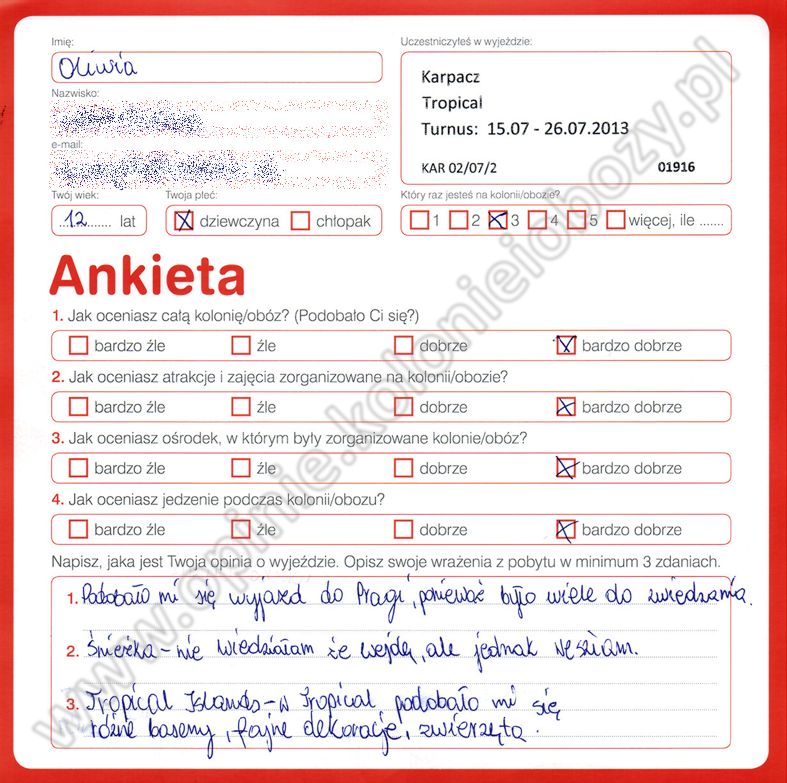 Imię:
Oliwia
Uczestniczyłeś w wyjeździe:
Karpacz
Tropical
Turnus: 15.07 - 26.07.2013
KAR 02/07/2 01916
Nazwisko:
e-mail:
Twój wiek:
...12....... lat
Twoja płeć:
dziewczyna chłopak
Który raz jesteś na kolonii/obozie?
1 2 3 4 5 więcej, ile .......
Ankieta
1. Jak oceniasz całą kolonię/obóz? (Podobało Ci się?)
bardzo źle źle dobrze bardzo dobrze
2. Jak oceniasz atrakcje i zajęcia zorganizowane na kolonii/obozie?
bardzo źle źle dobrze bardzo dobrze
3. Jak oceniasz ośrodek, w którym były zorganizowane kolonie/obóz?
bardzo źle źle dobrze bardzo dobrze
4. Jak oceniasz jedzenie podczas kolonii/obozu?
bardzo źle źle dobrze bardzo dobrze
Napisz, jaka jest Twoja opinia o wyjeździe. Opisz swoje wrażenia z pobytu w minimum 3 zdaniach.
1. Podobało mi się wyjazd do Pragi, ponieważ było wiele do zwiedzania.
2. Śnieżka - nie wiedziałam że wejdę, ale jednak weszłam.
3. Tropical Islands - w Tropical, podobało mi się
różne baseny, fajne dekoracje, zwierzęta.
www.opinie.kolonieiobozy.pl